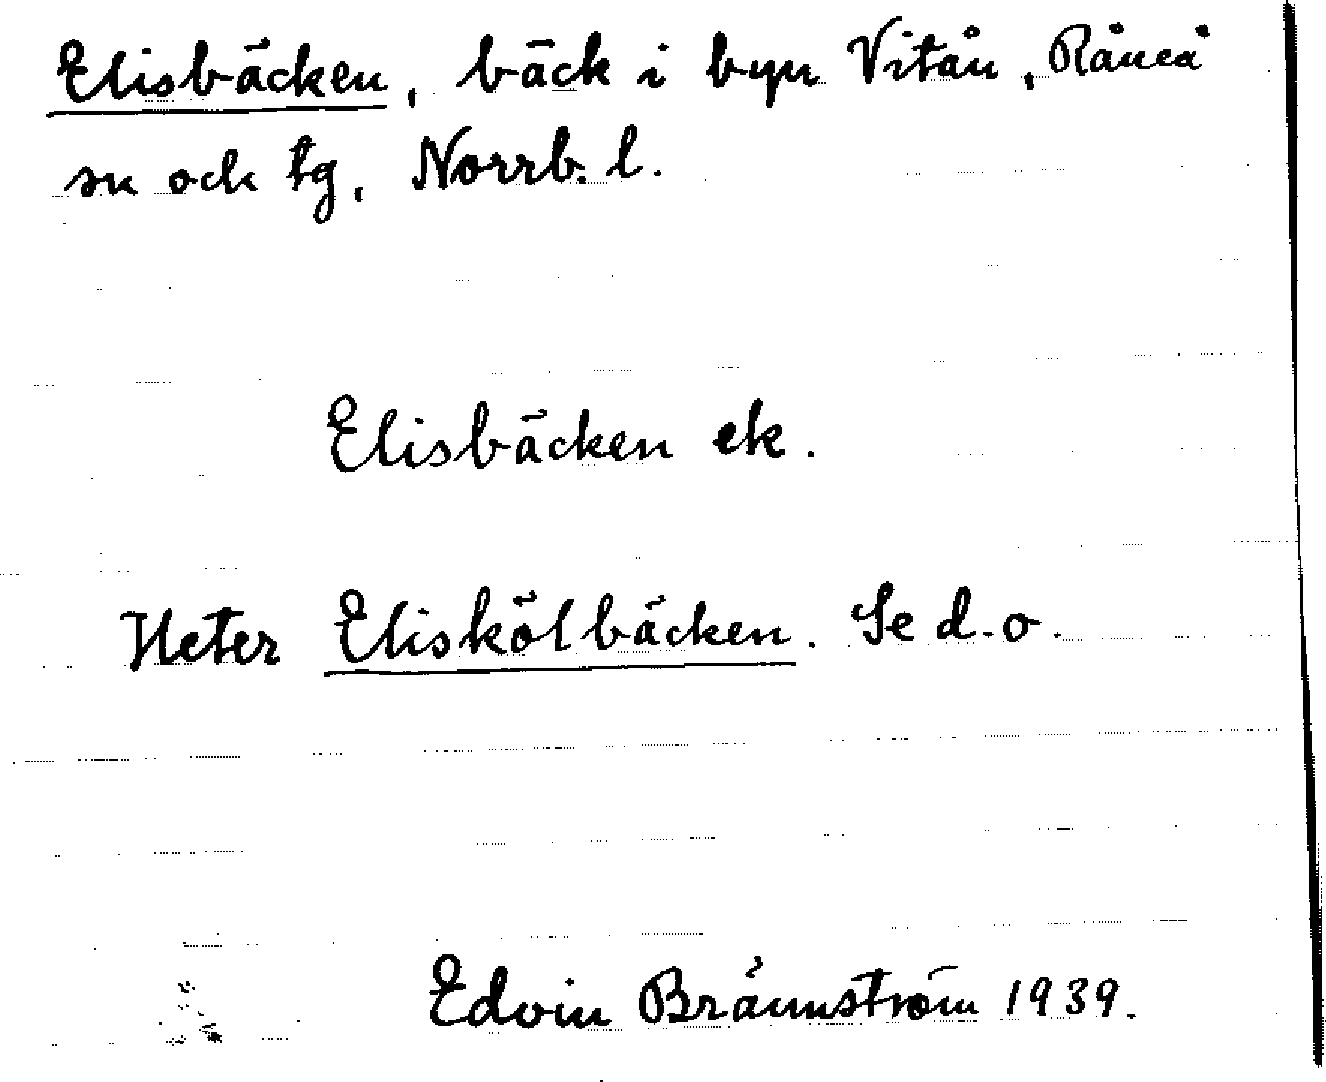 Elisbäcken, bäck i byn Vitån, Råneå
sn och tg, Norrb. l.
Elisbäcken ek.
Heter Eliskölbäcken. Se d.o.
Edvin Brännström 1939.